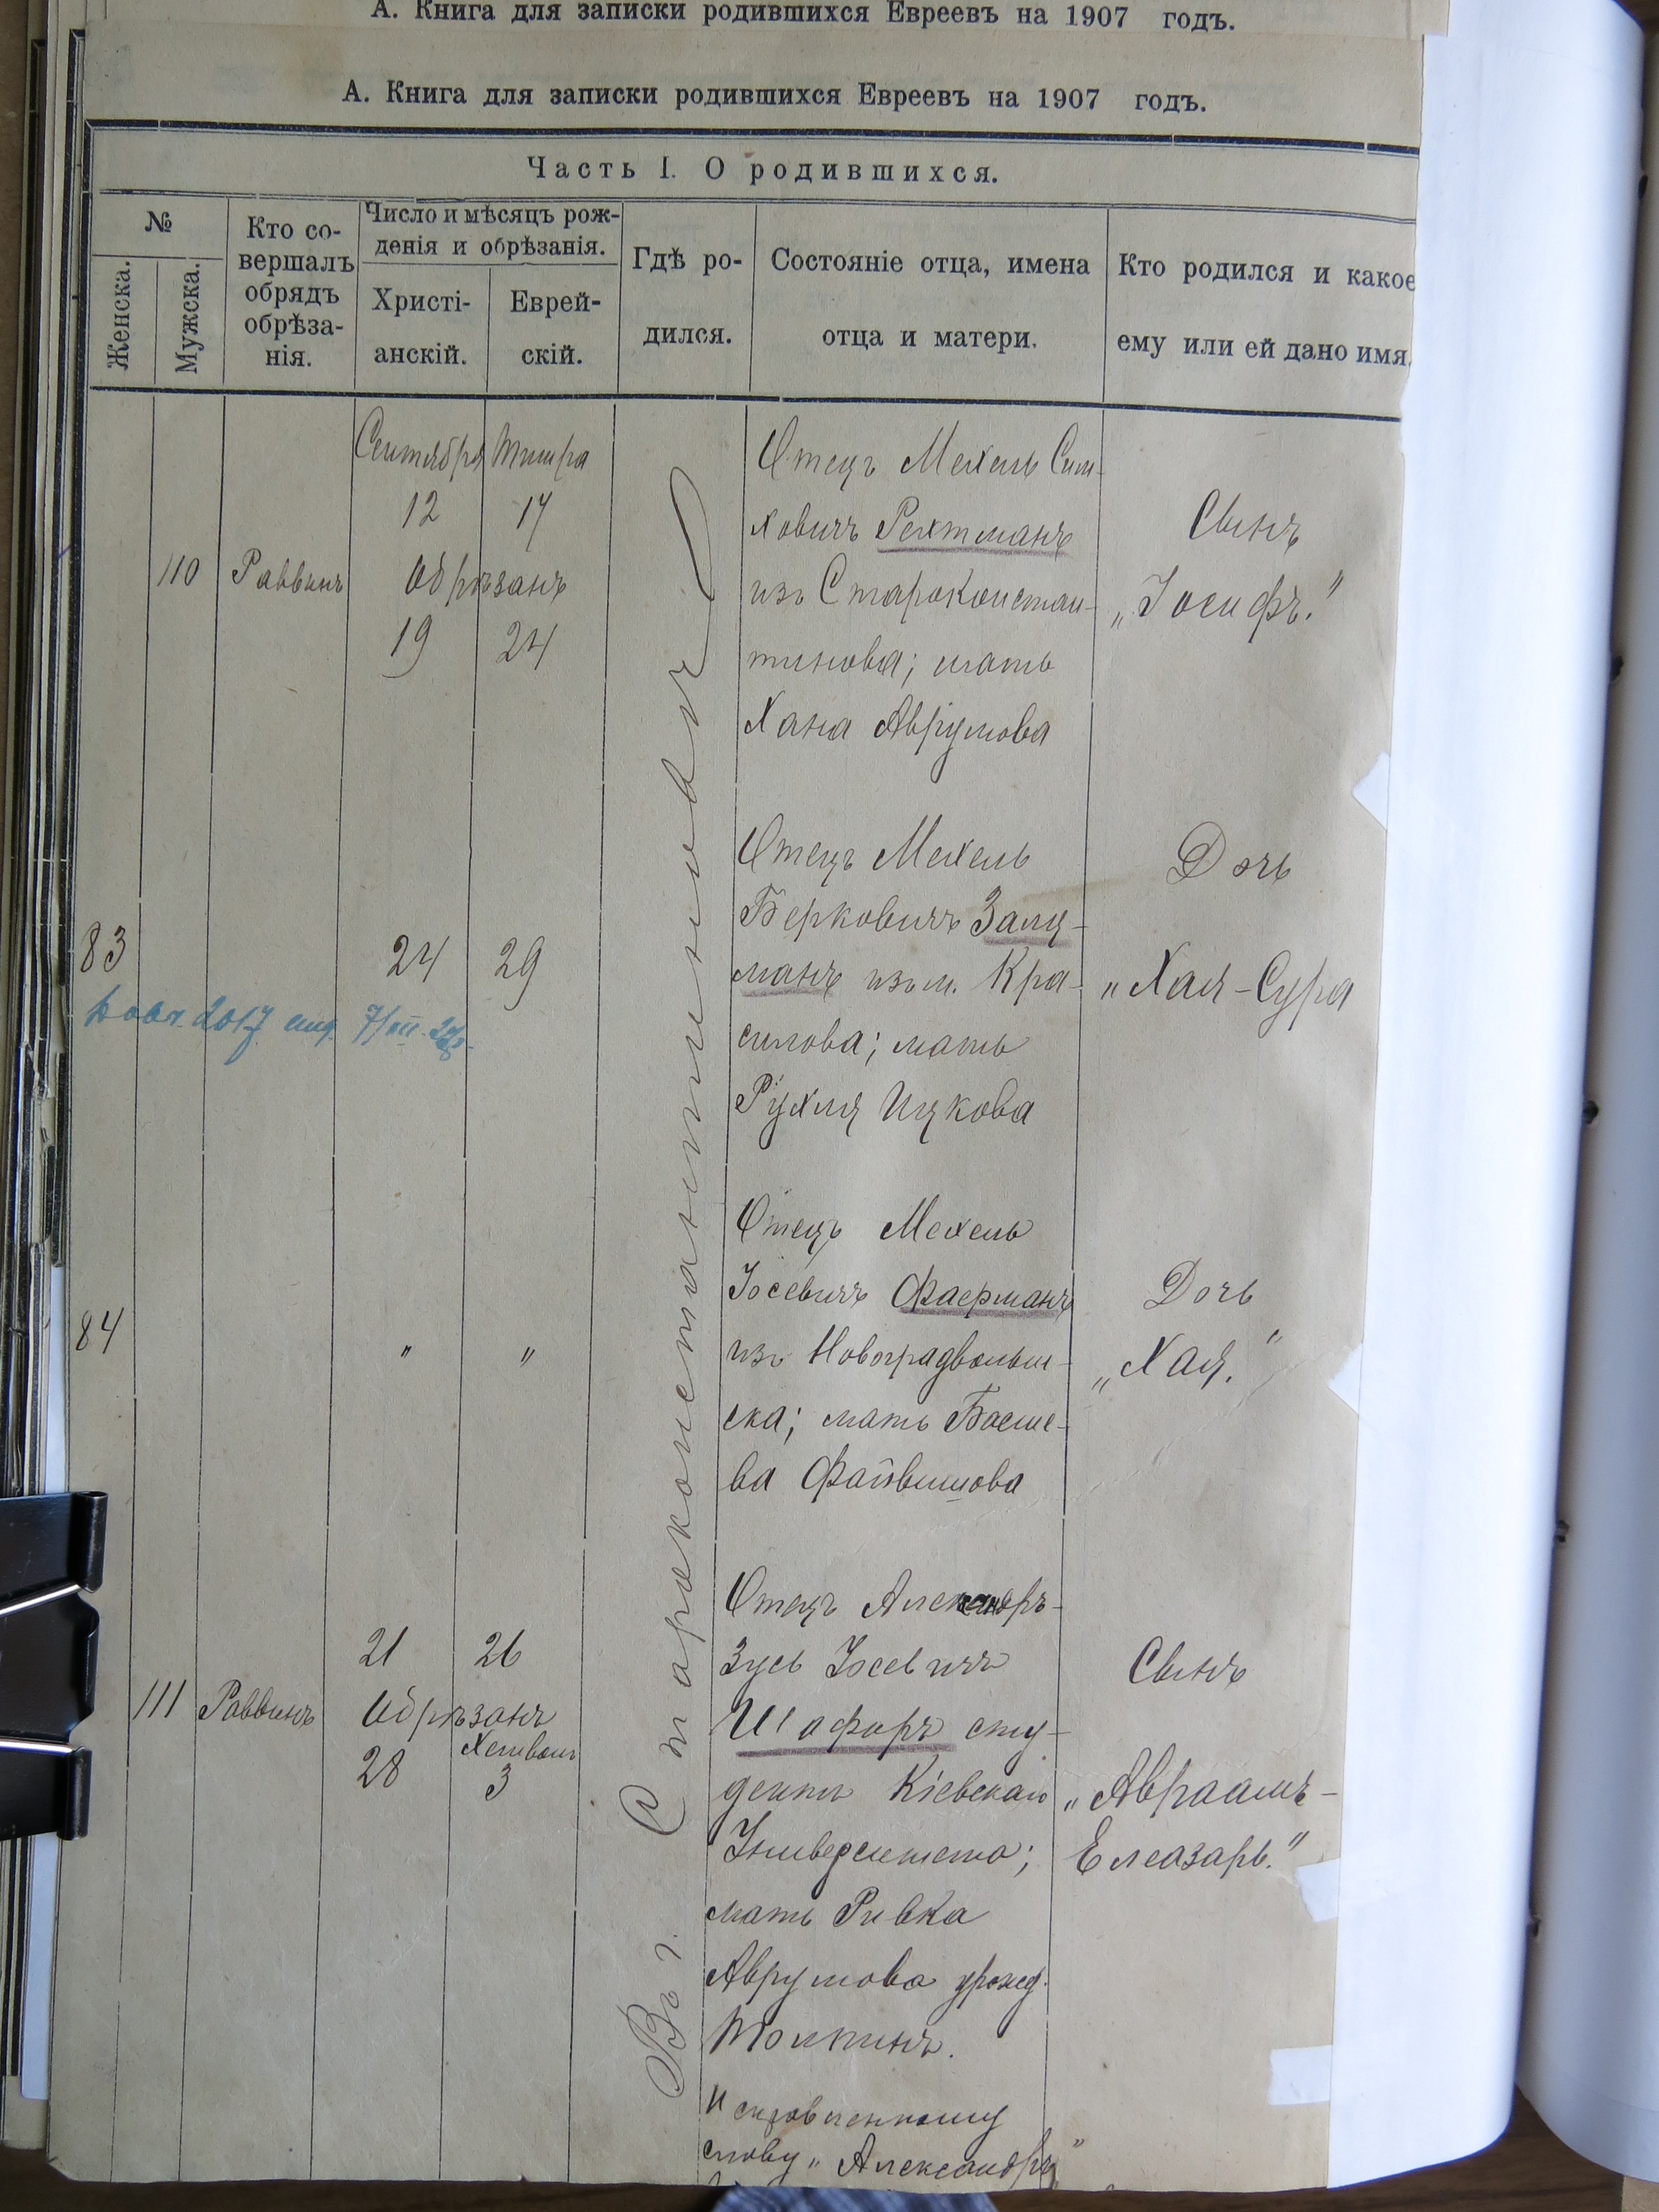 А. Книга для записки родившихся Евреевъ на 1907 годъ.
А. Книга для записки родившихся Евреевъ на 1907 годъ.
Часть I. О родившихся.
№
Женска.
Мужска.
Кто со-
вершалъ
обрядъ
обрѣза-
нія.
Число и мѣсяцъ рож-
денія и обрѣзанія.
Христі-
анскій.
Еврей-
скій.
Гдѣ ро-
дился.
Состояніе отца, имена
отца и матери.
Кто родился и какое
ему или ей дано имя.
Въ г. Староконстантиновѣ
110
Раввинъ
Сентября Тишра
12 17
Обрѣзанъ
19 24
Отецъ Мехель Сим-
ховичъ Рехтманъ
изъ Староконстан-
тинова; мать
Хана Аврумова
Сынъ
„Іосифъ."
83
24 29
Отецъ Мехель
Берковичъ Залц-
манъ изъ м. Кра-
силова; мать
Рухля Ицкова
Дочь
„Хая-Сура
84
" "
Отецъ Мехель
Іосевичъ Фаерманъ
изъ Новоградволын-
ска; мать Басше-
ва Файвишова
Дочь
„Хая."
111
Раввинъ
21 26
Обрѣзанъ
Хешвана
28 3
Отецъ Александръ-
Зусь Іосевичъ
Шафиръ сту-
дентъ Кіевскаго
Университета;
мать Ривка
Аврумова урожд.
Толпинъ.
Исправленному
слову „Александръ"
Сынъ
„Авраамъ-
Елеазаръ."